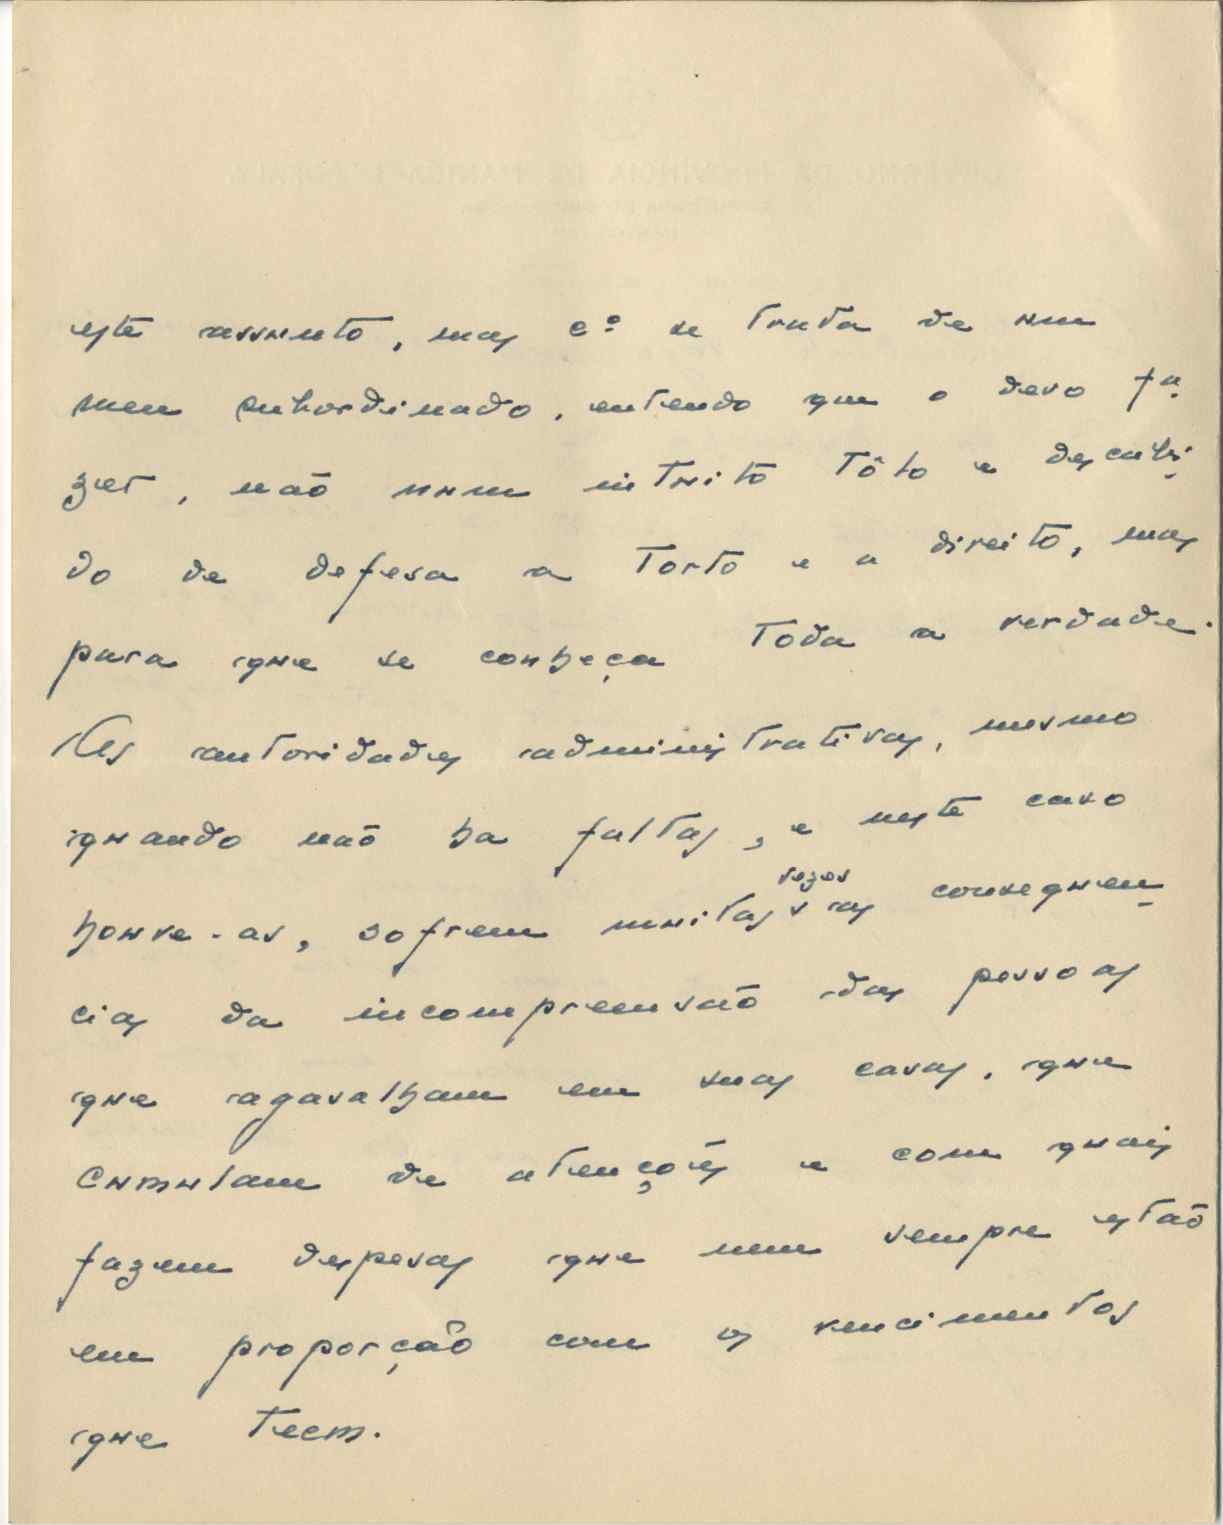 este assunto, mas cº se trata de um
meu subordinado, entendo que o devo fa-
zer, não num intuito tôlo e descabi-
do de defesa a torto e a direito, mas
para que se conheça toda a verdade.
As autoridades administrativas, mesmo
quando não ha faltas, e neste caso
houve-as, sofrem muitas vezes as consequen-
cias da incompreensão das pessoas
que agasalham em suas casas, que
cumulam de atenções e com quais
fazem despesas que nem sempre estão
em proporção com os vencimentos
que teem.